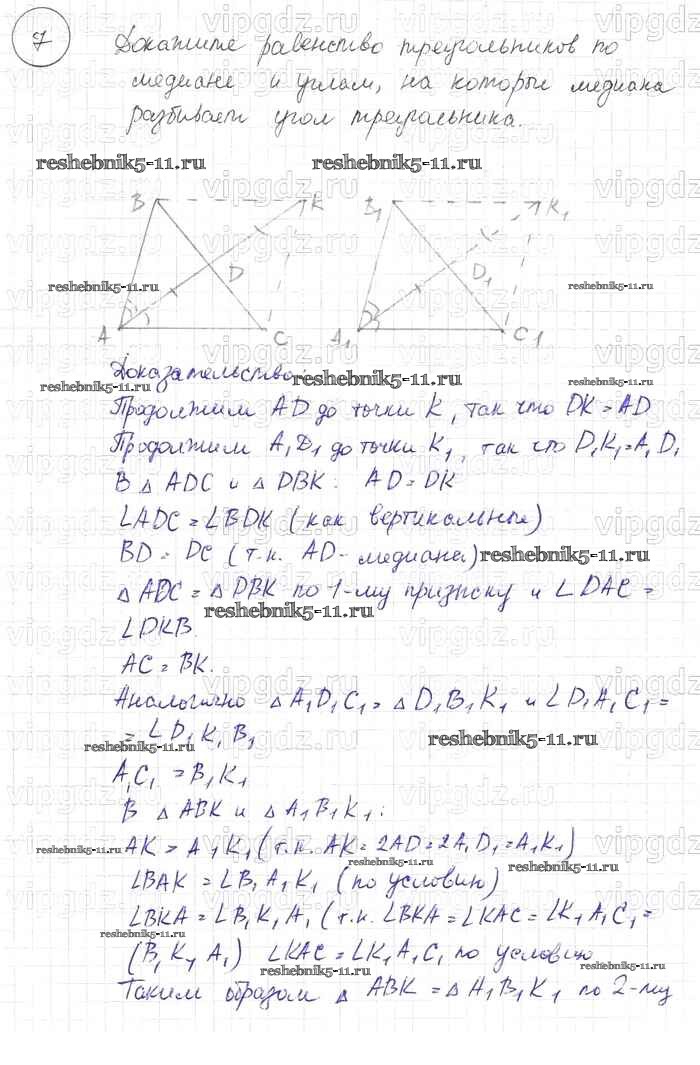 7
Докажите равенство треугольников по
медиане и углам, на которые медиана
разбивает угол треугольника.
reshebnik5-11.ru reshebnik5-11.ru
B K B1 K1
D D1
reshebnik5-11.ru reshebnik5-11.ru
A C A1 C1
Доказательство:
reshebnik5-11.ru reshebnik5-11.ru
Продолжим AD до точки K, так что DK=AD
Продолжим A1D1 до точки K1, так что D1K1=A1D1
В △ ADC и △ DBK: AD=DK
∠ADC=∠BDK (как вертикальные)
BD=DC (т.к. AD-медиана) reshebnik5-11.ru
△ ADC=△ DBK по 1-му признаку и ∠DAC=
reshebnik5-11.ru
∠DKB.
AC=BK.
Аналогично △ A1D1C1=△ D1B1K1 и ∠D1A1C1=
=∠D1K1B1
reshebnik5-11.ru reshebnik5-11.ru
A1C1=B1K1
В △ ABK и △ A1B1K1:
reshebnik5-11.ru AK=A1K1 (т.к. AK=2AD=2A1D1=A1K1)
reshebnik5-11.ru
∠BAK=∠B1A1K1 (по условию)
∠BKA=∠B1K1A1 (т.к. ∠BKA=∠KAC=∠K1A1C1=
reshebnik5-11.ru
(B1K1A1) ∠KAC=∠K1A1C1 по условию
reshebnik5-11.ru reshebnik5-11.ru
Таким образом △ ABK=△ A1B1K1 по 2-му
vipgdz.ru